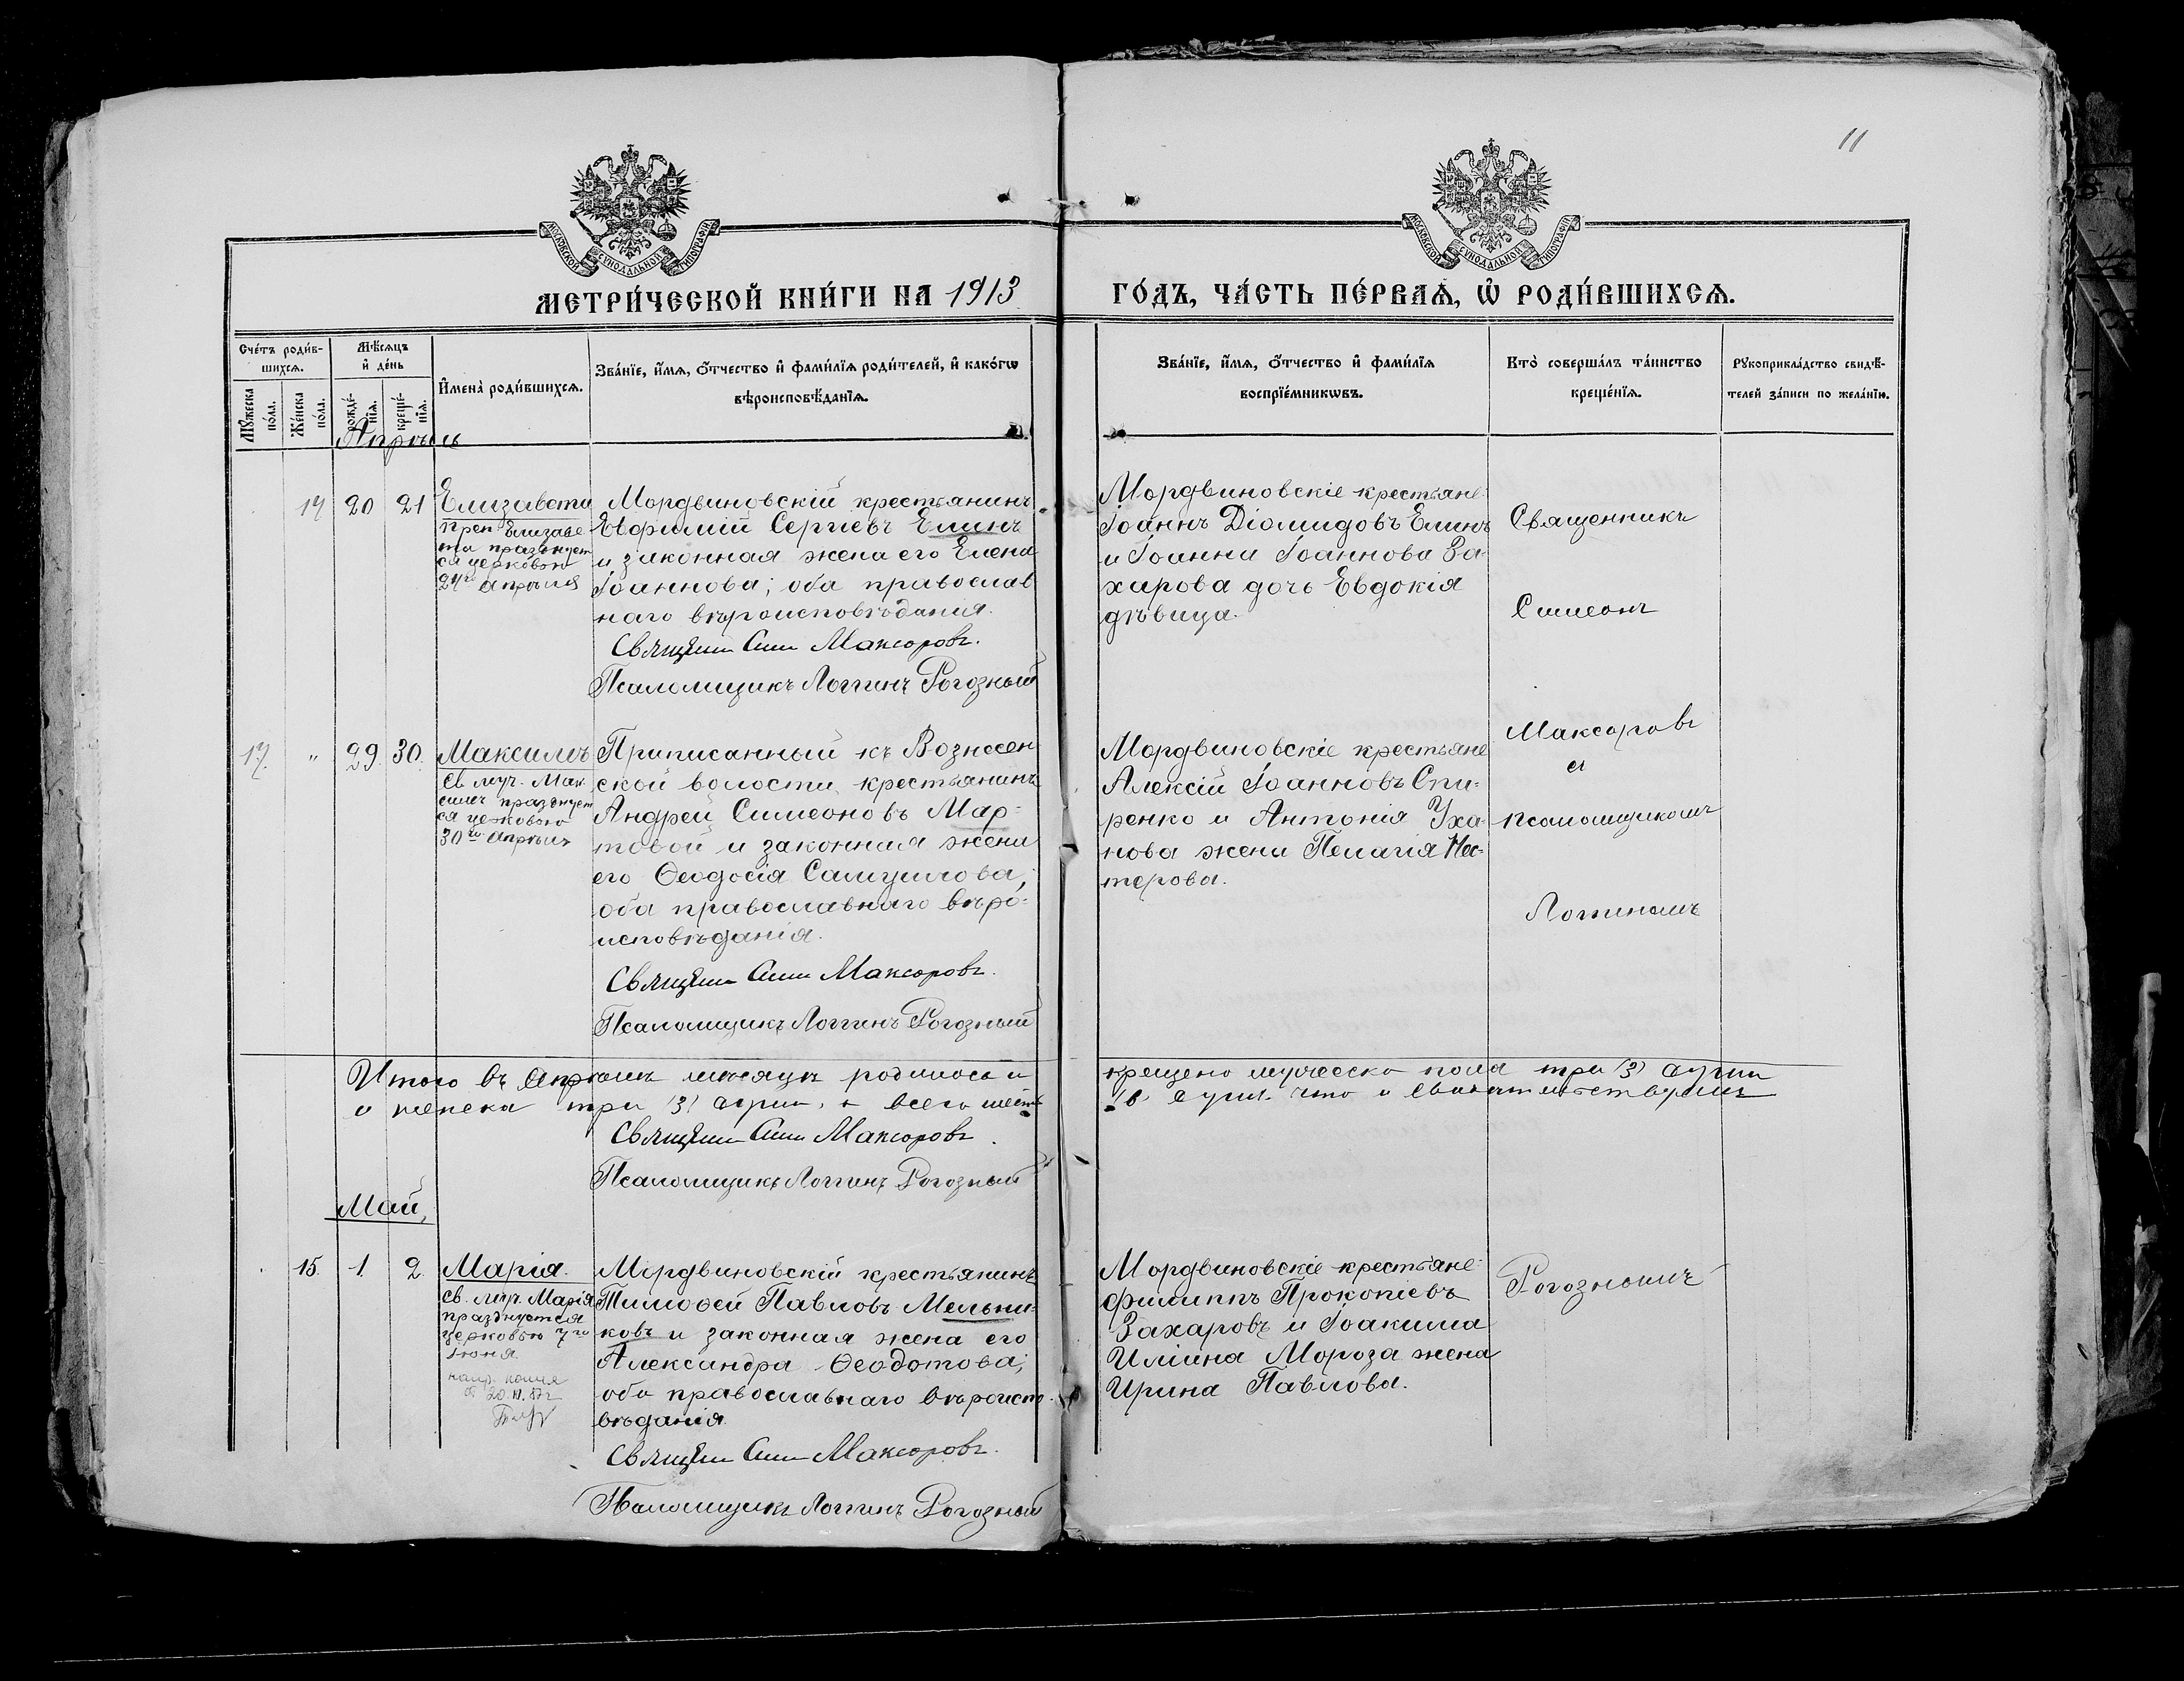 11
МОСКОВСКОЙ СѴНОДАЛЬНОЙ ТИПОГРАФІИ
МОСКОВСКОЙ СѴНОДАЛЬНОЙ ТИПОГРАФІИ
МЕТРИ́ЧЕСКОЙ КНИ́ГИ НА 1913 ГО́ДЪ, ЧА́СТЬ ПЕ́РВАѦ, Ѡ҆ РОДИ́ВШИХСѦ.
Сче́тъ роди́в-
шихсѧ.
Мꙋ́жеска
по́ла.
Же́нска
по́ла.
Мѣ́сѧцъ
и҆ де́нь
рожде́-
нїѧ.
креще́-
нїѧ.
И҆мена̀ роди́вшихсѧ.
Зва́нїе, и҆́мѧ, ѻ҆́тчество и҆ фами́лїѧ роди́телей, и҆ како́гѡ
вѣроисповѣ́данїѧ.
Зва́нїе, и҆́мѧ, ѻ҆́тчество и҆ фами́лїѧ
воспрїе́мникѡвъ.
Кто̀ соверша́лъ та́инство
креще́нїѧ.
Рꙋкоприкла́дство свидѣ́-
телей за́писи по жела́нїю.
Апрѣль
14 20 21 Елизавета
Преп Елизаве
та празднует
ся церковью
24го Апрѣля
Мордвиновскій крестьянинъ
Евфимій Сергіевъ Елинъ
и законная жена его Елена
Іоаннова; оба православ
наго вѣроисповѣданія.
Священ Сим Максоровъ.
Псаломщикъ Логгинъ Рогозный
Мордвиновскіе крестьяне
Іоаннъ Діомидовъ Елинъ
и Іоанна Іоаннова За-
харова дочь Евдокія
дѣвица.
Священникъ
Симеонъ
17. " 29. 30. Максимъ
Св муч. Мак
симъ празднует
ся церковью
30го Апрѣля
Приписанный къ Вознесен
ской волости крестьянинъ
Андрей Симеоновъ Мар-
товой и законная жена
его Ѳеодосія Самуилова;
оба православнаго вѣро-
исповѣданія.
Священ Сим Максоровъ.
Псаломщикъ Логгинъ Рогозный
Мордвиновскіе крестьяне
Алексій Іоанновъ Спи-
ренко и Антонія Уха-
нова жена Пелагія Нес-
терова.
Максоровъ
и
псаломщикомъ
Логгиномъ
Итого въ Апрѣлѣ мѣсяцѣ родилось и крещено мужеска пола три (3) души
и женска три (3) души, а всего шесть (6) душъ что и свидѣтельствуемъ
Священ Сим Максоровъ.
Псаломщикъ Логгинъ Рогозный
Май,
15. 1. 2. Марія.
Св. муч. Марія
празднуется
церковью 7го
Іюня.
20.VI.87г
Мордвиновскій крестьянинъ
Тимоѳей Павловъ Мельни-
ковъ и законная жена его
Александра Ѳеодотова;
оба православнаго вѣроиспо-
вѣданія.
Священ Сим Максоровъ.
Псаломщикъ Логгинъ Рогозный
Мордвиновскіе крестьяне
Филиппъ Прокопіевъ
Захаровъ и Іоакима
Иліина Мороза жена
Ирина Павлова.
Рогознымъ